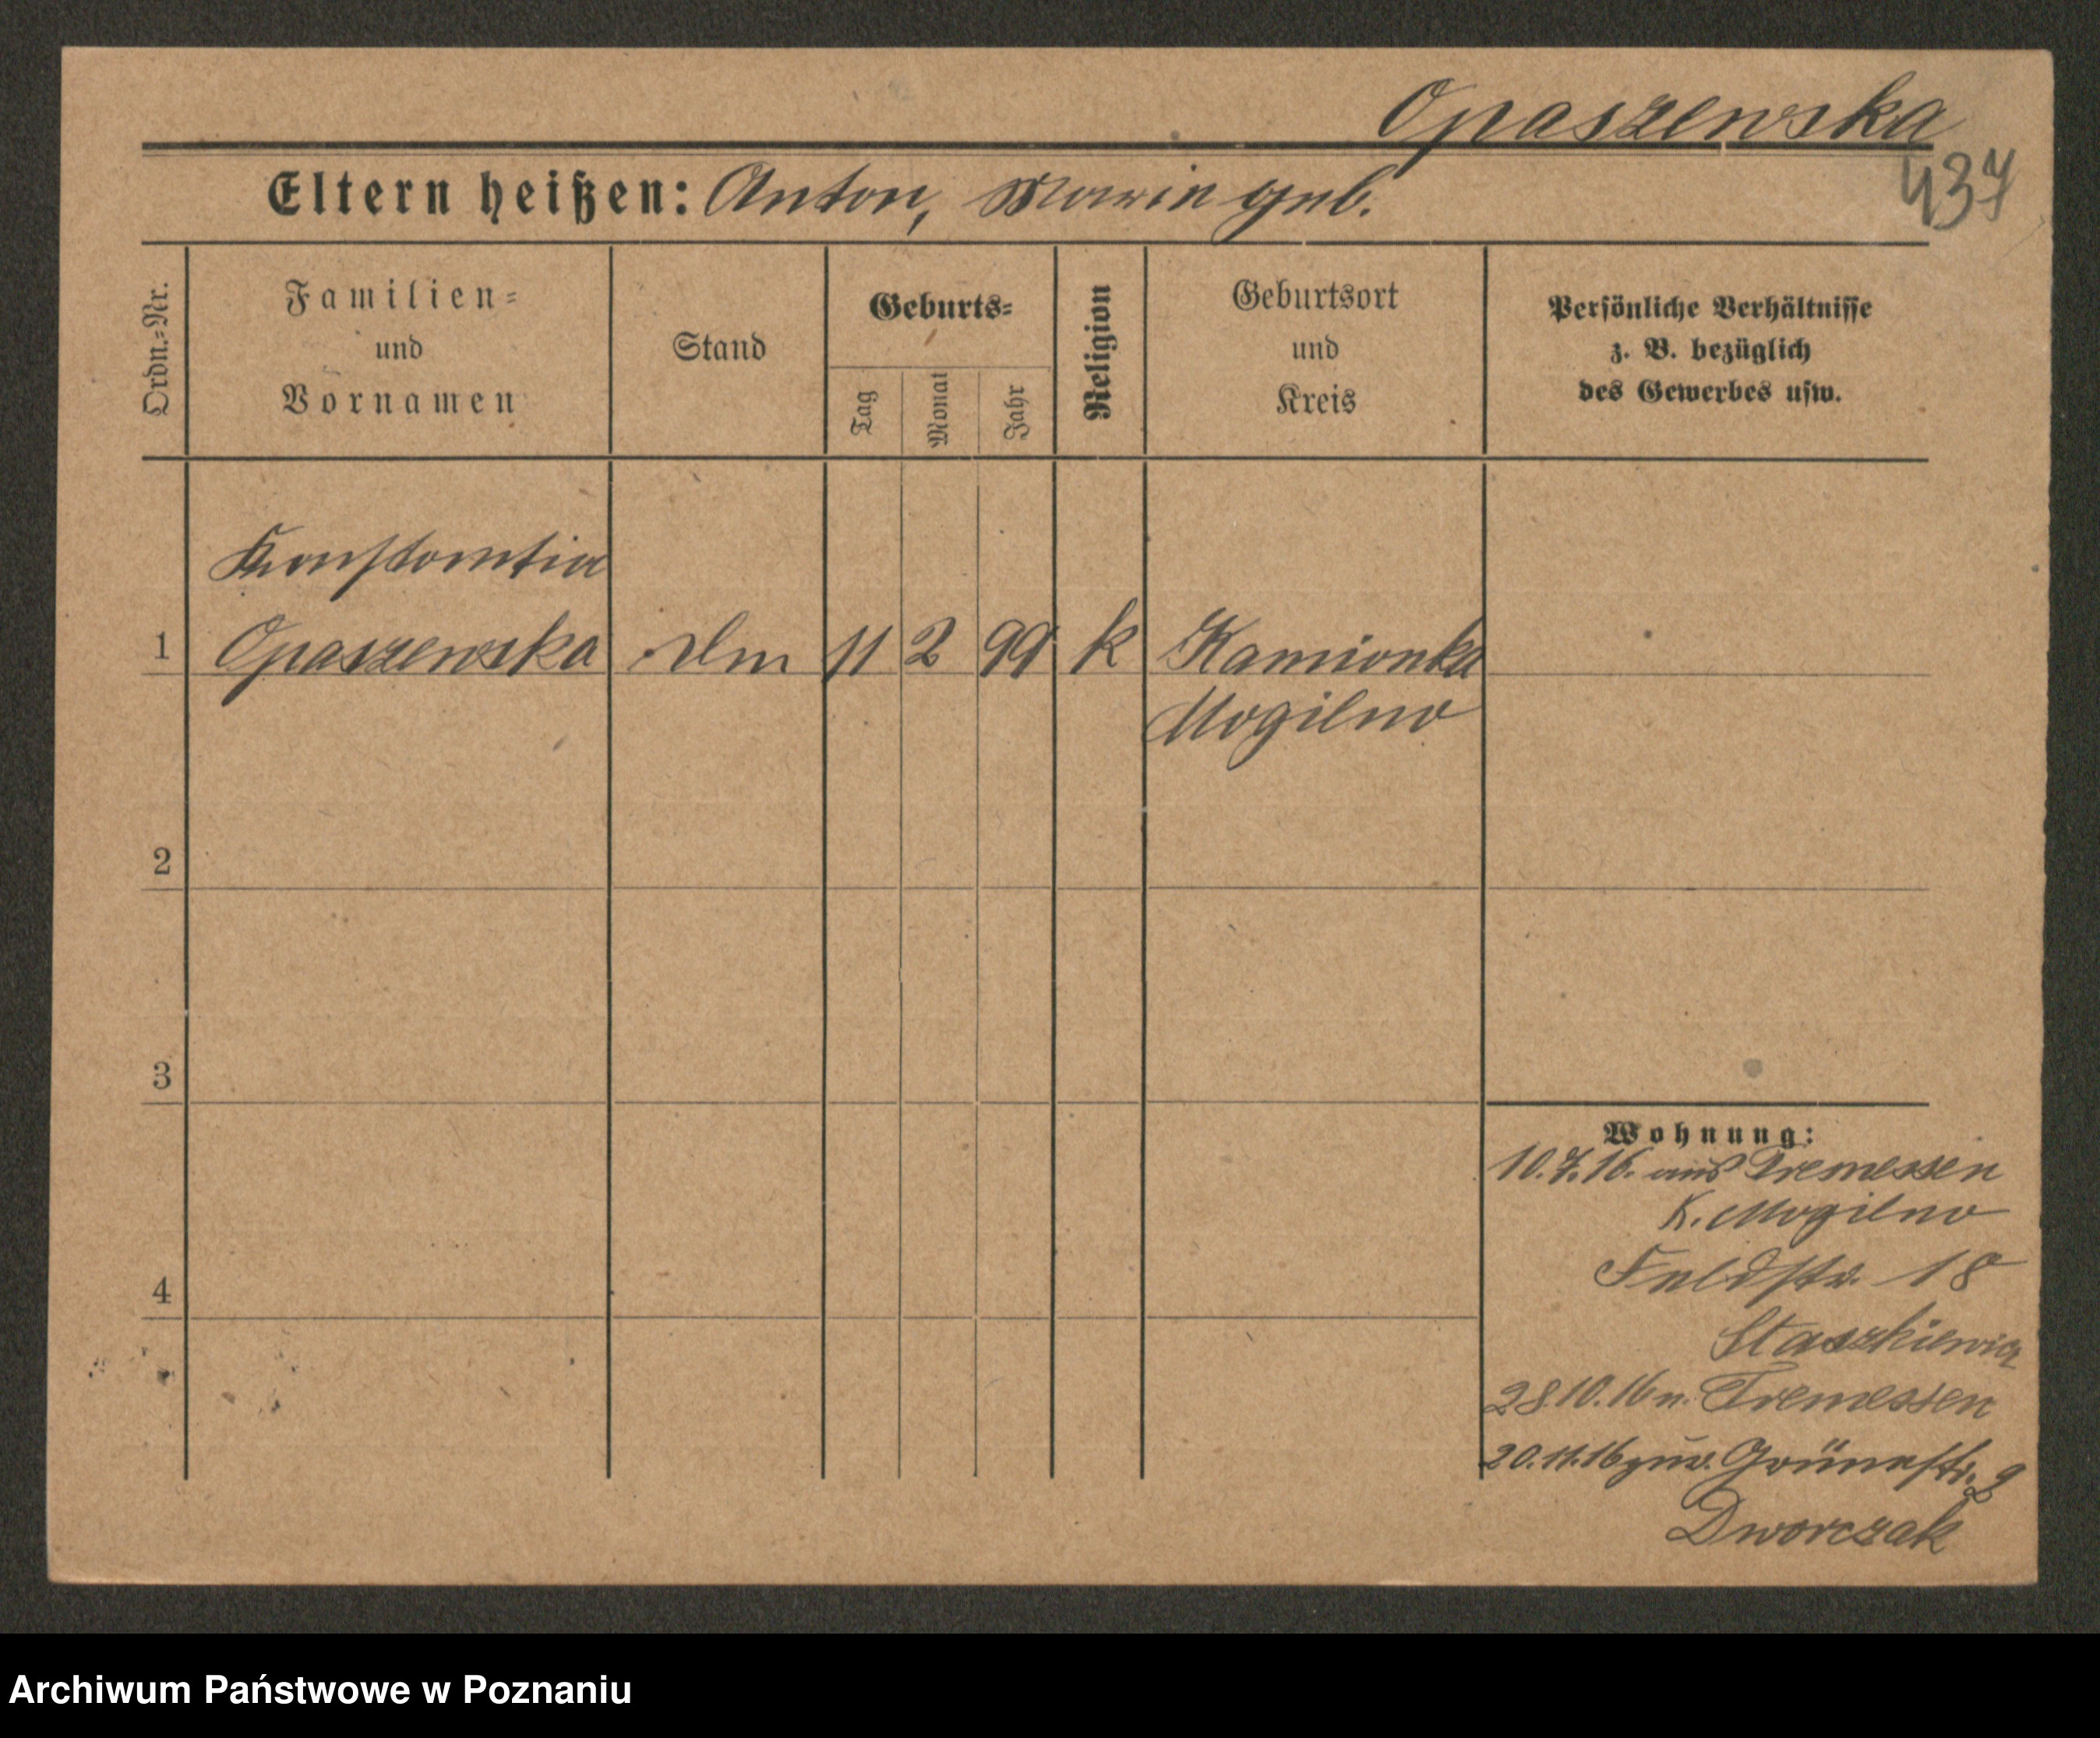 Opaszewska
437
Eltern heißen: Anton, Marie geb.
Ordn.=Nr.
Familien=
und
Vornamen
Stand
Geburts=
Tag
Monat
Jahr
Religion
Geburtsort
und
Kreis
Persönliche Verhältnisse
z. B. bezüglich
des Gewerbes usw.
Konstantia
1 Opaszewska 11 2 99 k Kamionka
Mogilno
2
3
4
Wohnung:
10.7.16. aus Tremessen
K. Mogilno
Feldstr. 18
Staszkiewicz
28.10.16 n. Tremessen
20.11.16 zur. Grünestr. 2
Dworczak
Archiwum Państwowe w Poznaniu